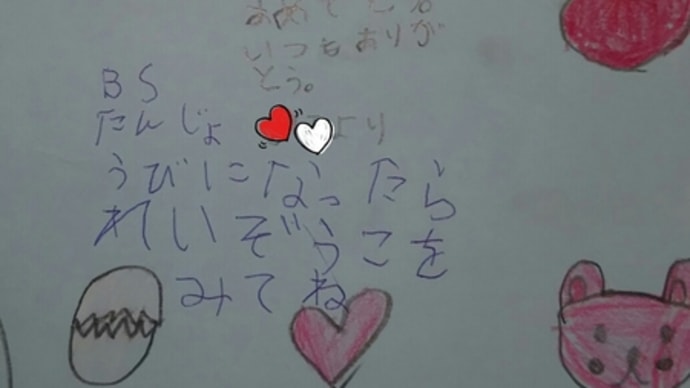 おめでとう
いつもありが
とう。
より
BS
たんじょ
うびになったら
れいぞうこを
みてね